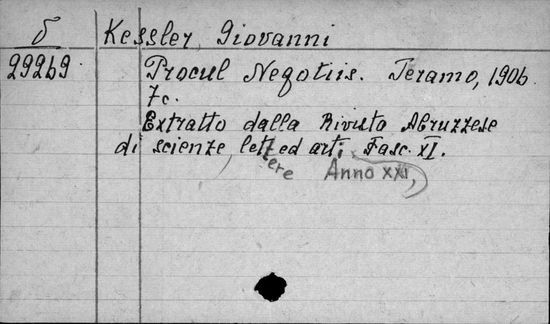 б Kessler, Giovanni
29269 Procul Negotiis. Teramo, 1906
7c.
Extratto dalla Rivista Abruzzese
di scienze, lett ed arti, Fasc. XI.
tere Anno XXI,